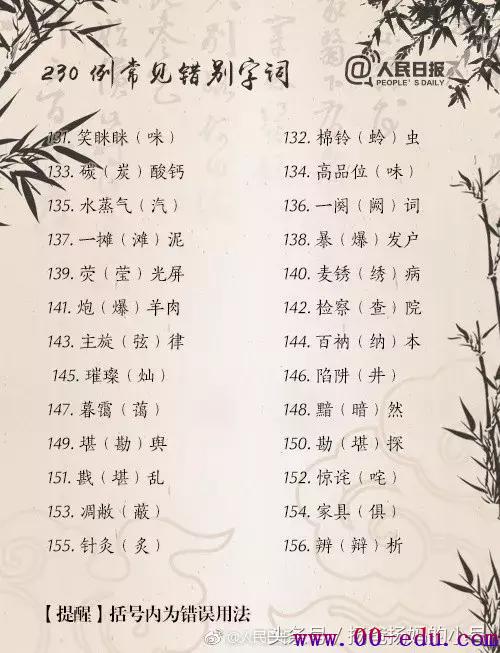 230 例常见错别字词
@人民日报
PEOPLE'S DAILY
131. 笑眯眯（咪） 132. 棉铃（蛉）虫
133. 碳（炭）酸钙 134. 高品位（味）
135. 水蒸气（汽） 136. 一阕（阙）词
137. 一摊（滩）泥 138. 暴（爆）发户
139. 荧（莹）光屏 140. 麦锈（绣）病
141. 炮（爆）羊肉 142. 检察（查）院
143. 主旋（弦）律 144. 百衲（纳）本
145. 璀璨（灿） 146. 陷阱（井）
147. 暮霭（蔼） 148. 黯（暗）然
149. 堪（勘）舆 150. 勘（堪）探
151. 戡（堪）乱 152. 惊诧（咤）
153. 凋敝（蔽） 154. 家具（俱）
155. 针灸（炙） 156. 辨（辩）析
【提醒】括号内为错误用法
www.00-edu.com